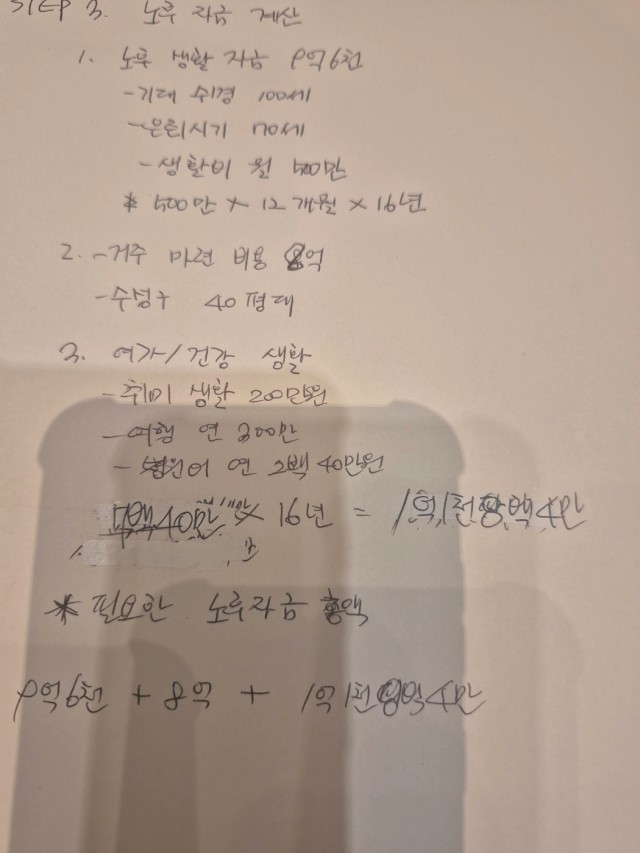 STEP 3. 노후 자금 계산
1. 노후 생활 자금 9억6천
-기대 수명 100세
-은퇴시기 70세
-생활비 월 500만
* 500만 × 12개월 × 16년
2. -거주 마련 비용 8억
-수성구 40평대
3. 여가/건강 생활
-취미 생활 200만원
-여행 연 300만
-병원비 연 2백40만원
× 16년 = 1억1천 4만
* 필요한 노후자금 총액
9억6천 + 8억 + 1억1천 4만